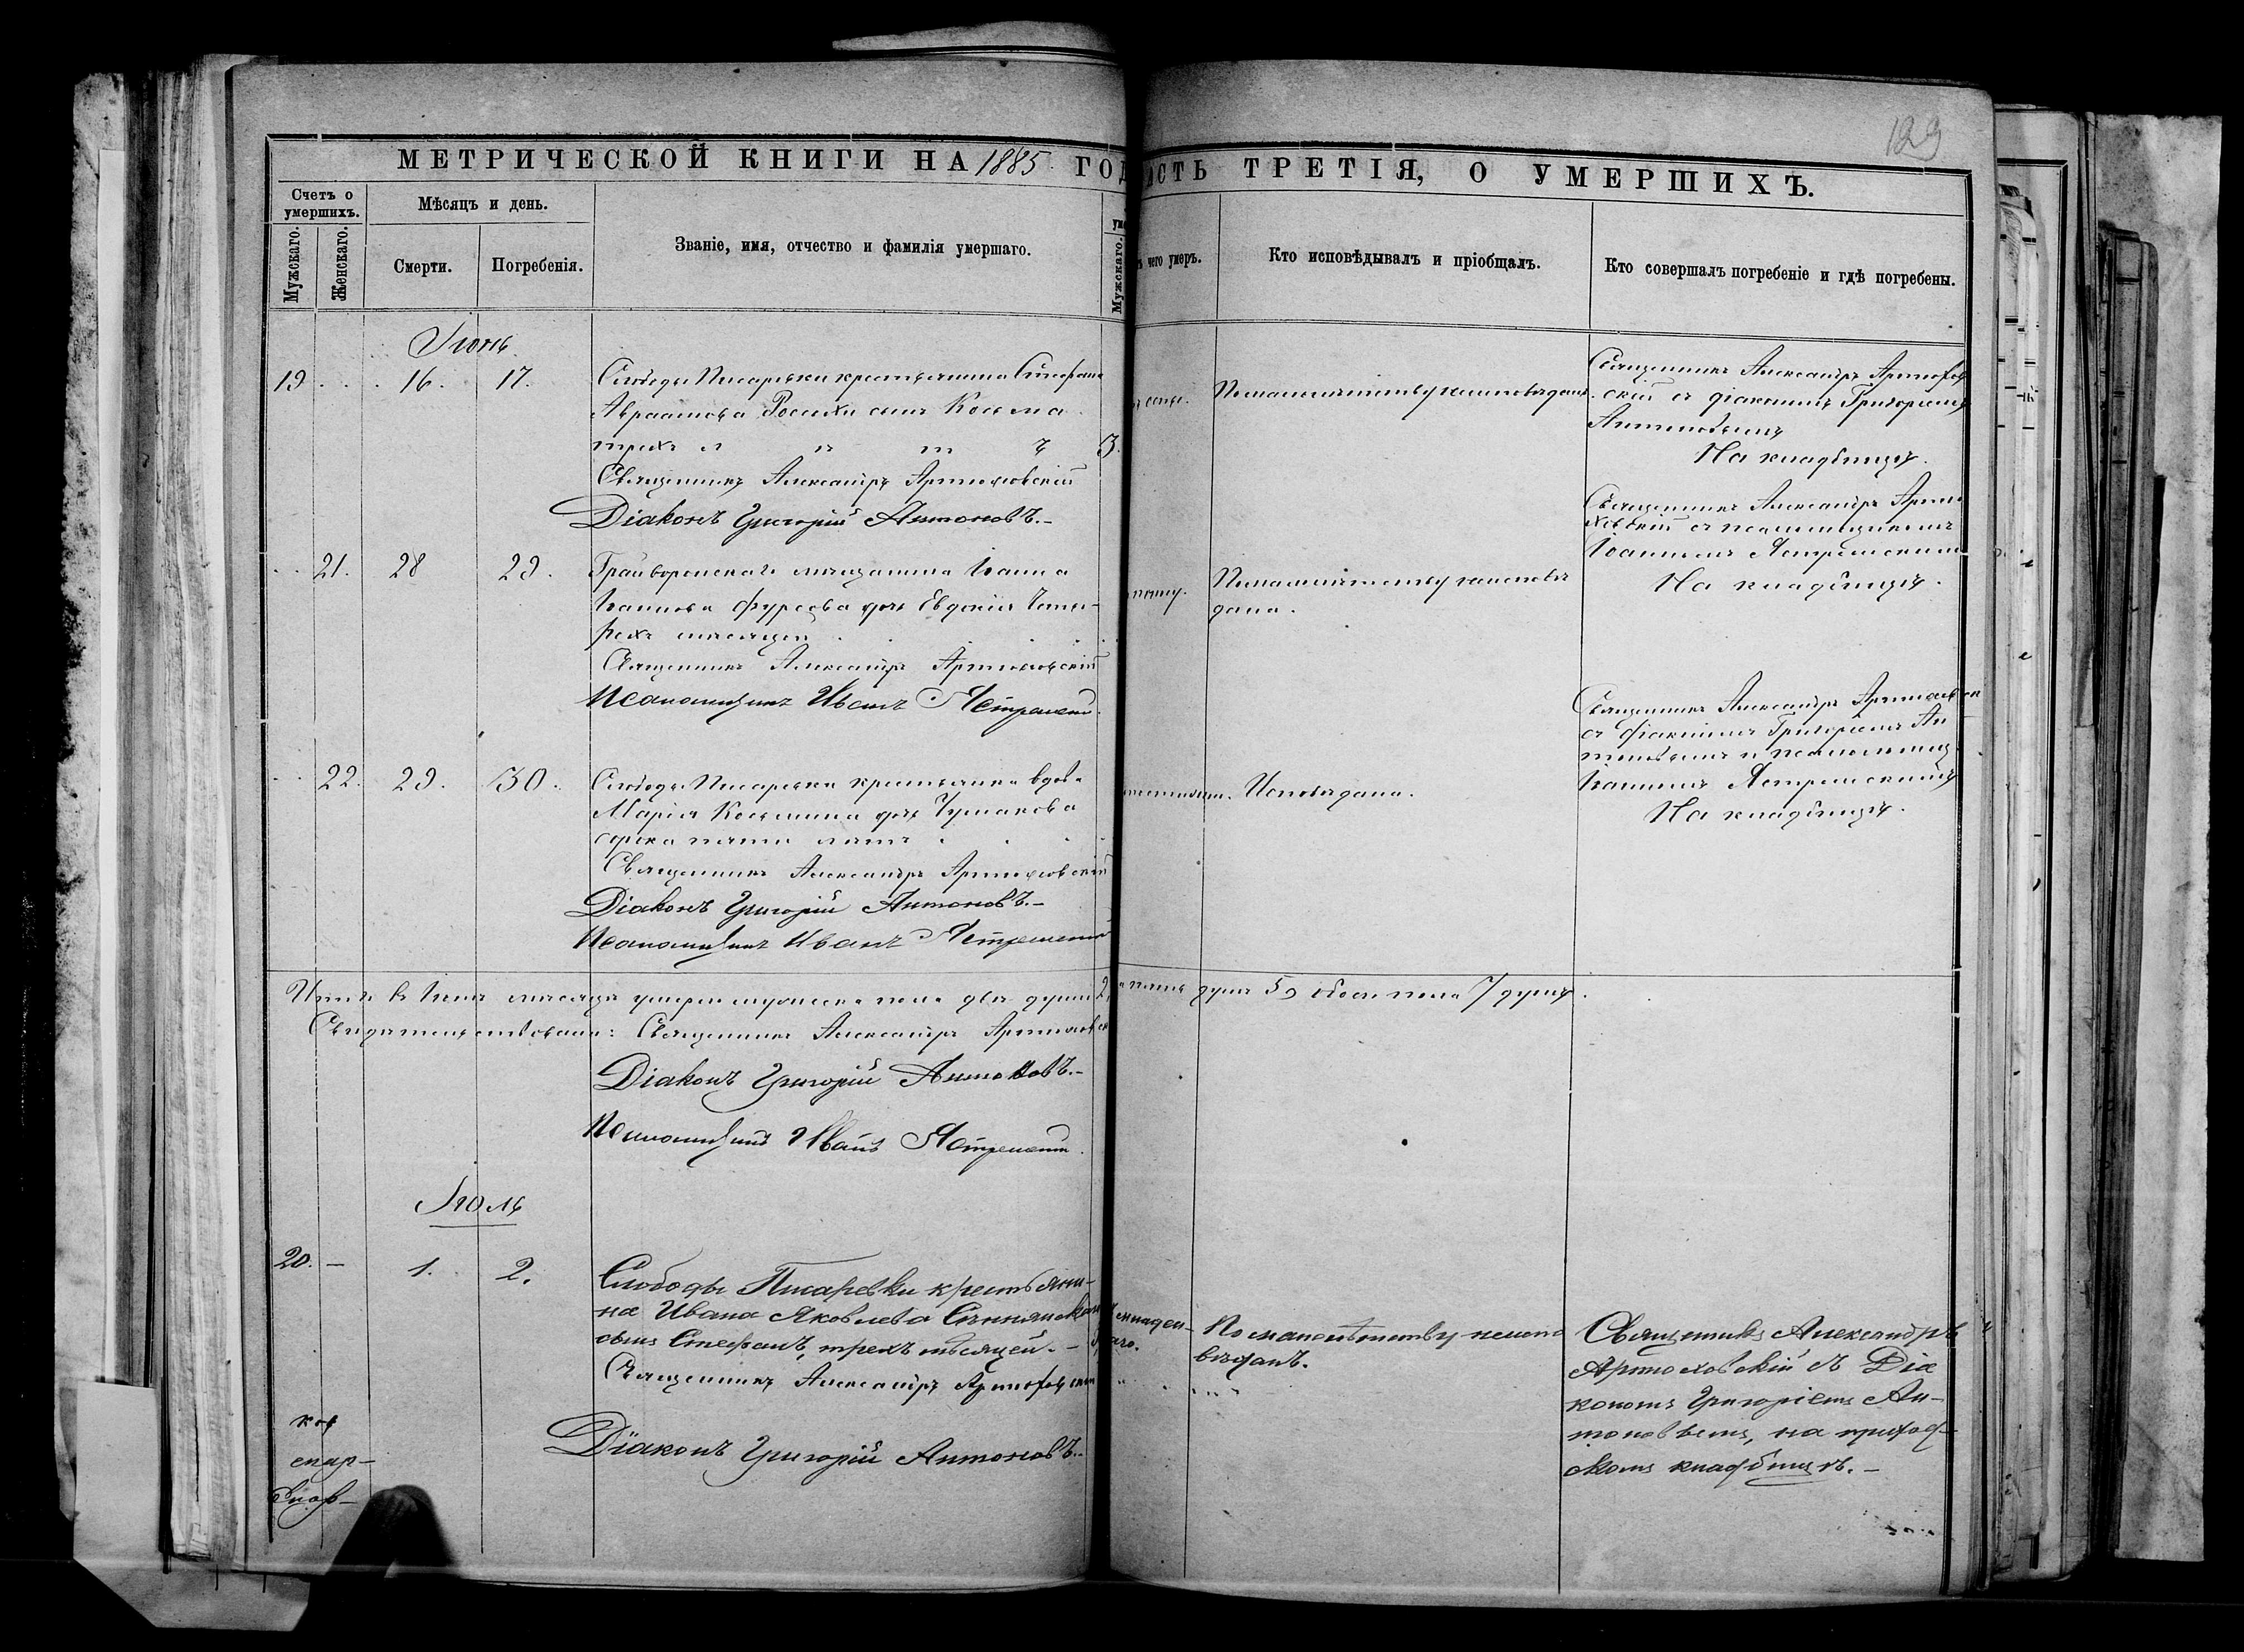 129
МЕТРИЧЕСКОЙ КНИГИ НА 1885 ГОД
АСТЬ ТРЕТІЯ, О УМЕРШИХЪ.
Счетъ о умершихъ.
Мужскаго.
Женскаго.
Мѣсяцъ и день.
Смерти.
Погребенія.
Званіе, имя, отчество и фамилія умершаго.
Мужскаго.
чего умеръ.
Кто исповѣдывалъ и пріобщалъ.
Кто совершалъ погребеніе и гдѣ погребены.
Іюнь
19 16. 17.
Слободы Писаревки крестьянина Стефана
Авраамова сынъ Косьма
трехъ л ѣ т ъ 3.
Священникъ Александръ Артюховскій
Діаконъ Григорій Антоновъ.-
По малолѣтству неисповѣданъ.
Священникъ Александръ Артюхов
скій съ діакономъ Григоріемъ
Антоновымъ
На кладбищѣ.
21. 28 29.
Грайворонскаго мѣщанина Іоанна
Іоаннова Фурсова дочь Евдокія Четы-
рехъ мѣсяцев
Священникъ Александръ Артюховскій
Псаломщикъ Иванъ
По малолѣтству неисповѣ
дана.
Священникъ Александръ Артю
ховскій съ псаломщикомъ
Іоанномъ
На кладбищѣ.
22. 29. 30.
Слободы Писаревки крестьянка вдова
Марія Косьмина дочь Чумакова
сорока пяти лѣтъ
Священникъ Александръ Артюховскій
Діаконъ Григорій Антоновъ.-
Псаломщикъ Иванъ
Исповѣдана.
Священникъ Александръ
съ діакономъ Григоріемъ Ан
тоновымъ и псаломщик
Іоанномъ
На кладбищѣ.
Итого въ Іюнѣ мѣсяцѣ умерло мужеска пола двѣ души 2, пять душъ 5, обоего пола 7 душъ.
Свидѣтельствовали: Священникъ Александръ Артюховск
Діаконъ Григорій Антоновъ.-
Псаломщикъ Иванъ
Іюль
20. — 1. 2.
Слободы Писаревки крестьяни-
на Ивана Яковлева
сынъ Стефанъ, трехъ мѣсяцей. -
Священникъ Александръ Артюховскій
Діаконъ Григорій Антоновъ.-
По малолѣтству неиспо
вѣданъ.
Священникъ Александръ
Артюховскій съ Діа
кономъ Григоріемъ Ан-
тоновымъ, на приход-
скомъ кладбищѣ. -